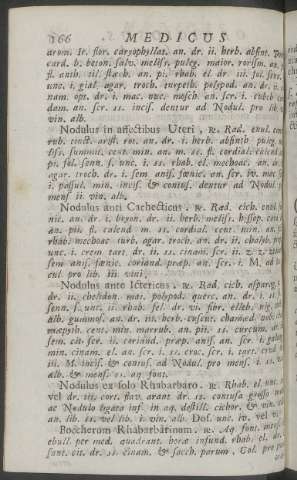 166 MEDICUS
arom. Ir. flor. caryophyllat. an. dr. ii. herb. absint. Pont.
card. b. beton. salv. meliss. puleg. maior. rorism. an.
fl. anth. til. stœch. an. pi. rhab. el. dr. iii. fol. sene.
unc. i. gial. agar. troch. turpeth. polypod. an. dr. ii.
nam. opt. dr. i. mac. nuc. mosch. an. scr. i. cubeb. car
dam. an. scr. ss. incis. dentur ad Nodul. pro lib.
vin. alb.
Nodulus in affectibus Uteri, ℞. Rad. enul. cent.
rub. tinct. arist. rot. an. dr. i. herb. absinth puleg.
liss. summit. cent. min. an. m. ss. fl. cordial. calend.
pi. fol. senn. s. unc. i. ss. rhab. el. mechoac. an. dr.
agar. troch. dr. i. sem anis. fœnic. an. scr. iv. mac.
i. passul. min. incis. & contus. dentur ad Nodul.
mens ii vin. alb.
Nodulus anti Cachecticus. ℞. Rad. cich. enul.
nic. an. dr. i. bryon. dr. ii. herb. meliss. hyssop.
an. pii. fl. calend m. ss. cordial. cent. min. an.
rhab. mechoac turb. agar. troch. an. dr. ii. chalyb.
unc. i. crem tart. dr. iii. ss. cinam. scr. ii.
sem anis. fœnic. coriand. præp. an. scr. i. M. ad
cul pro lib. iii. vini.
Nodulus ante Ictericus. ℞. Rad. cich. asparag.
dr. ii. chelidon. mas. polypod. querc. an. dr. i. ss.
senn. s. unc. ii. rhab. fel. dr. vi. fibr. elleb. nig.
alb. gummos. an. dr. iii. herb. cuscut. chamed.
mæpyth. cent. min. marrub. an. pii. ss. curcum. dr.
sem. cit. scr. ii. coriand. præp. anis. an. scr. i. galan
min. cinam. el. an. scr. i. ss. croc. scr. i. tart.
iii. M. incis. & contus. ad Nodul. pro mens. i. ss.
alb. & mens. ss. aq. font.
Nodulus ex solo Rhabarbaro. ℞. Rhab. el. unc.
vel dr. iii. cort. flav. arant dr. ss. contusa grosso
ac Nodulo ligata inf. in aq. destill. cichor. &
an. lib. ss. vel lib. i. vin. alb. Dos. unc. iv. vel vi.
Bocherum Rhabarbarinum. ℞. Aq. font.
ebull. per med. quadrant. horæ infund. rhab. el. dr.
sant. cit. dr. ss. cinam. & sacch. parum. Col. pro